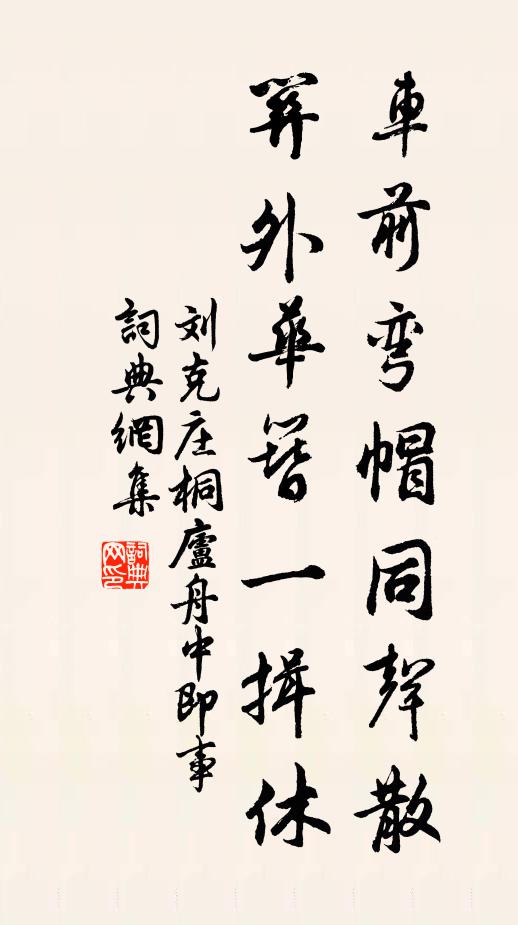 車前弯帽同聲散
笄外華簪一揖休
刘克庄桐廬舟中即事
詞典網集
詞典网印